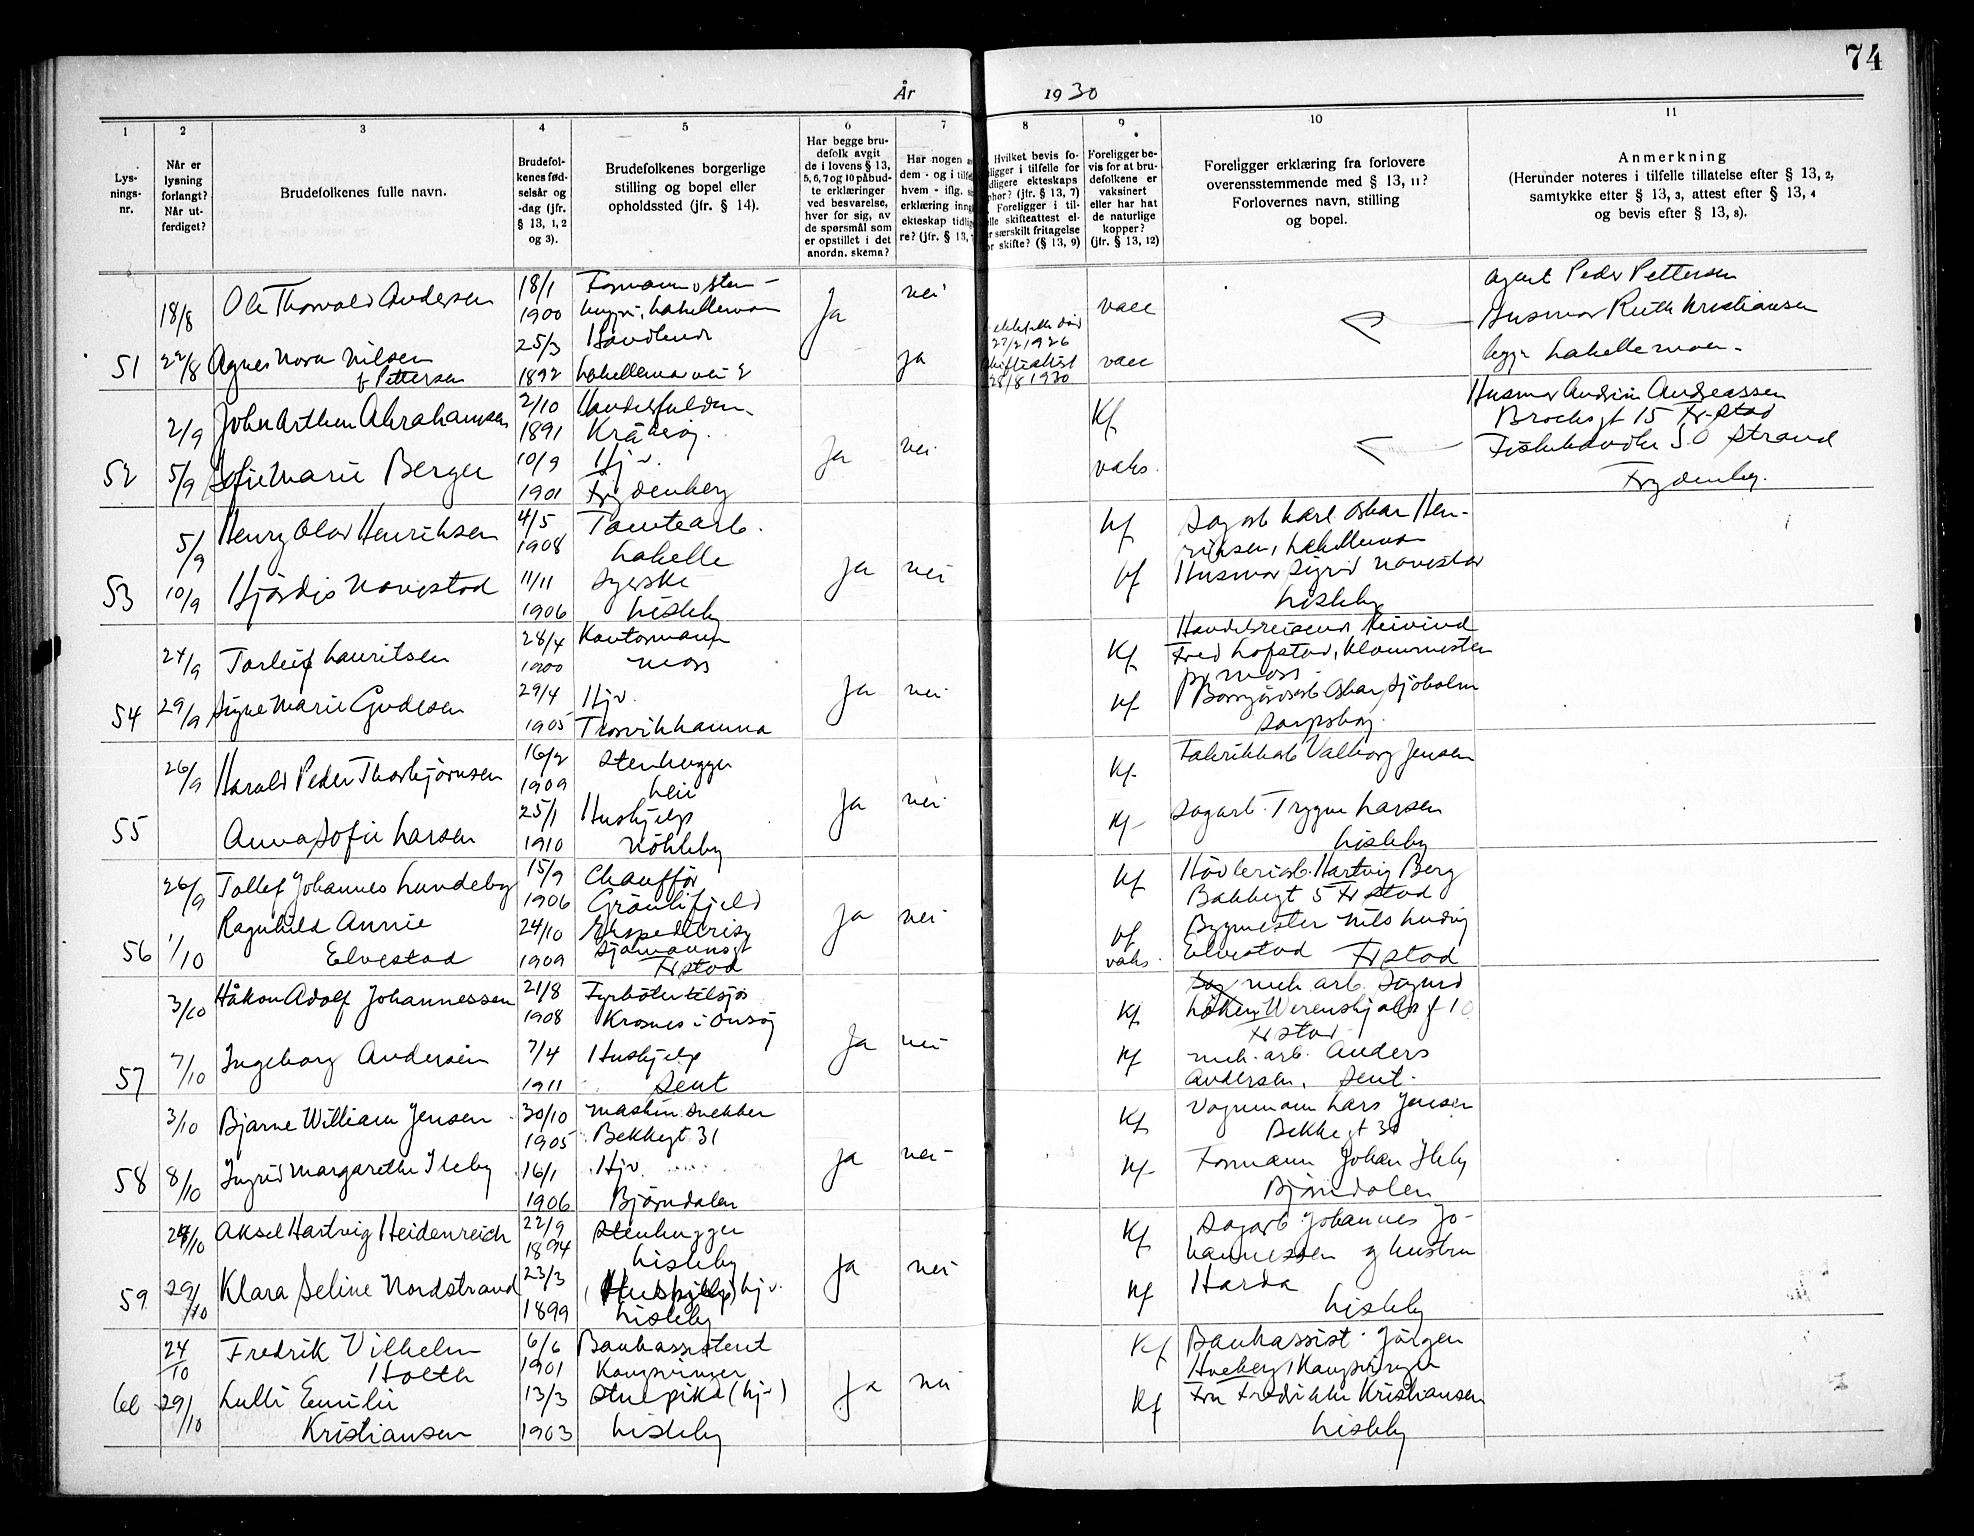 74
År 1930
1 2 3 4 5 6 7 8 9 10 11
Lys-
nings-
nr.
Når er
lysning
forlangt?
Når ut-
ferdiget?
Brudefolkenes fulle navn.
Brudefol-
kenes fød-
selsår og
-dag (jfr.
§ 13, 1, 2
og 3).
Brudefolkenes borgerlige
stilling og bopel eller
opholdssted (jfr. § 14).
Har begge bru-
defolk avgit
de i lovens § 13,
5, 6, 7 og 10 påbud-
te erklæringer
ved besvarelse,
hver for sig, av
de spørsmål som
er opstillet i det
anordn. skema?
Har nogen
dem - og i tilfe
hvem - iflg.
erklæring inng
ekteskap tidlig
re? (jfr. § 13,
Hvilket bevis fo-
ligger i tilfelle for
dligere ekteskaps
phør? (jfr. § 13, 7)
Foreligger i til-
elle skifteattest el-
r særskilt fritagelse
or skifte? (§ 13, 9)
Foreligger be-
vis for at bru-
defolkene er
vaksinert
eller har hat
de naturlige
kopper?
(jfr. § 13, 12)
Foreligger erklæring fra forlovere
overensstemmende med § 13, 11?
Forlovernes navn, stilling
og bopel.
Anmerkning
(Herunder noteres i tilfelle tillatelse efter § 13, 2,
samtykke efter § 13, 3, attest efter § 13, 4
og bevis efter § 13, 8).
51
18/8
22/8
Ole Thorvald Andersen
Agnes Nora Nilsen
f. Pettersen
18/1
1900
25/3
1892
Formann sten-
Lahellemoen
Lahellemoen
Ja
nei
ja
27/2 1926
skifteattest
28/8 1930
vacc
vacc
Agent Peder Pettersen
Husmor Ruth Kristiansen
begge Lahellemoen.
52
2/9
5/9
John Arthur Abrahamsen
Sofie Marie Berger
2/10
1891
10/9
1901
Kråkerøy.
Hjv.
Frydenberg
Ja
nei
Kf
vaks.
Husmor Andrine Andreassen
Brochsgt 15 Fr.stad
Fiskehandler S.O. Strand
Frydenbg.
53
5/9
10/9
Henry Olav Henriksen
Hjørdis Navestad
4/5
1908
11/11
1906
Tomtearb.
Lahelle
Syerske
Lisleby
Ja
nei
kf
kf
Sagarb Karl Oskar Hen-
riksen, Lahellemoen
Husmor Sigrid Navestad
Lisleby
54
24/9
29/9
Torleif Lauritsen
Signe Marie Gudesen
28/4
1900
29/4
1905
Kontormann
Moss
Hjv.
Trosvikhamna
Ja
nei
Kf
kf
Handelsreisende Reivind
Fred Lofstad, Klommesten
pr Moss.
Borregårdsarb. Oskar Sjøholm
Sarpsborg.
55
26/9
Harald Peder Thorbjørnsen
Anna Sofie Larsen
16/2
1909
25/1
1910
Stenhugger
Leie
Hushjelp
Nøkleby
Ja
nei
Kf
Kf
Fabrikkarb Valborg Jensen
Sagarb. Trygve Larsen
Lisleby
56
26/9
1/10
Tollef Johannes Lundeby
Ragnhild Annie
Elvestad
15/9
1906
24/10
1909
Chauffør
Grønlifjeld
Ekspeditrise
Sjømannsgt
Frstad
Ja
nei
kf
kf
vaks.
Høvleriarb. Hartvig Berg
Bakkegt 5 Frstad
Bygmester Nils Ludvig
Elvestad Frstad
57
3/10
7/10
Håkon Adolf Johannessen
Ingeborg Andersen
21/8
1908
7/4
1911
Fyrbøter tilsjøs
Krosnes i Onsøy
Hushjelp
Sent
Ja
nei
Kf
Kf
Sag mek arb. Sigurd
Løken, Werenskjolds g 10
Frstad
mek. arb. Anders
Andersen, Sent.
58
3/10
8/10
Bjarne William Jensen
Ingrid Margarethe Ileby
30/10
1905
16/1
1906
Maskinsnekker
Bekkegt 31
Hjv.
Bjørndalen
Ja
nei
Kf
kf
Vognmann Lars Jensen
Bekkegt 31
Formann Johan Ileby
Bjørndalen
59
24/10
29/10
Aksel Hartvig Heidenreich
Klara Seline Nordstrand
22/9
1894
23/3
1899
Stenhugger
Lisleby
(Hushjelp) hjv.
Lisleby
Ja
nei
Kf
kf
Sagarb Johannes Jo-
hannessen og hustru
Harda
Lisleby
60
24/10
29/10
Fredrik Vilhelm
Holth
Lulli Emilie
Kristiansen
6/6
1901
13/3
1903
Bankassistent
Kongsvinger
Stuepike (hjv)
Lisleby
Ja
nei
Kf
Kf
Bankassist. Jörgen
Hveberg, Kongsvinger
Fru Fredrikke Kristiansen
Lisleby